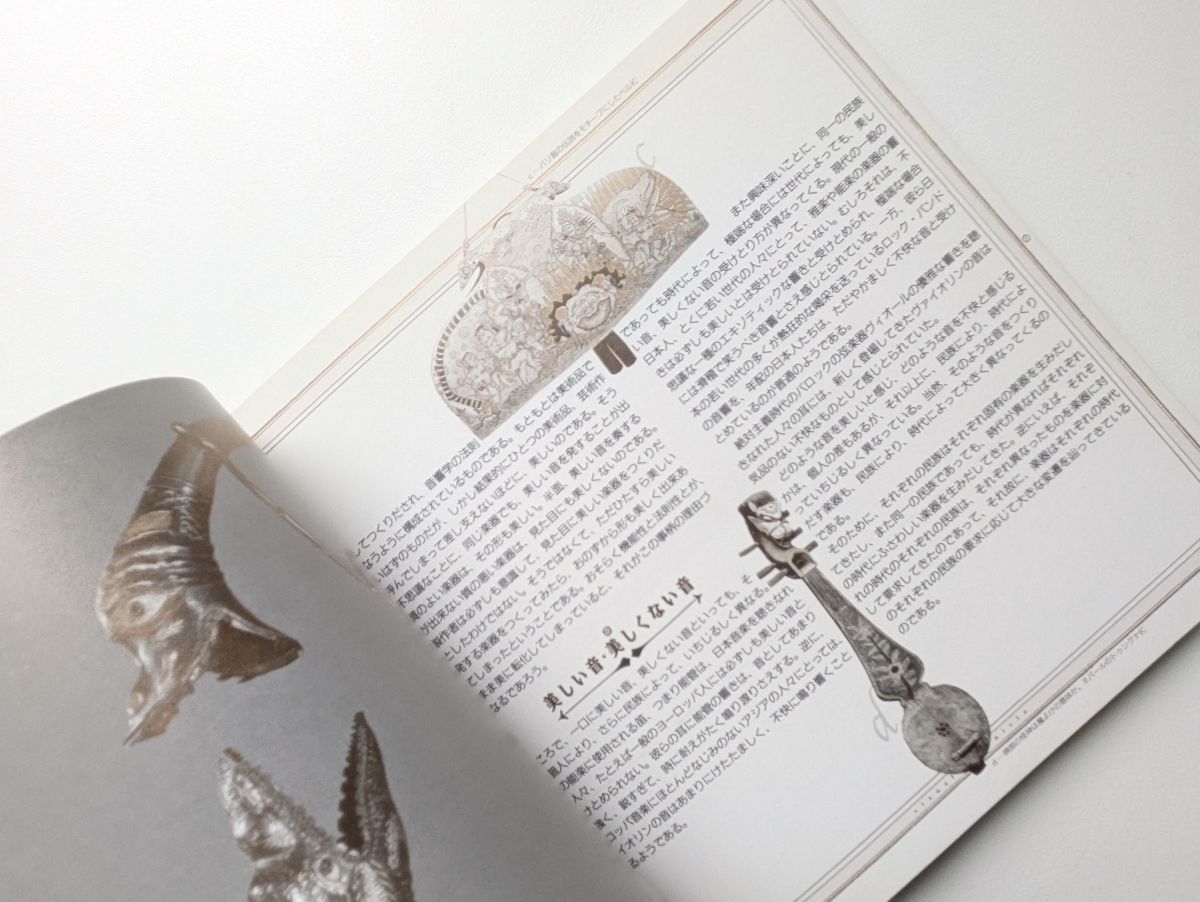 c—バリ島の伝説をモチーフにしたベル/K
c
してつくりだされ、音響学の法則
ように構成されているものである。もともとは美術品で
はずのものだが、しかし結果的にひとつの美術品、芸術作
呼んでしまって差し支えないほどに、美しいのである。そう
不思議なことに、同じ楽器でも、美しい音を発することが出
質のよい楽器は、その形も美しい。半面、美しい音を奏する
が出来ない質の悪い楽器は、見た目にも美しくないのである。
製作者は必ずしも意識して、見た目に美しい楽器をつくりだ
としたわけではない。そうではなくて、ただひたすら美しい
発する楽器をつくってみたら、おのずから形も美しく出来あ
てしまったということである。おそらく機能性と法則性とが、
まま美に転化してしまっていると、それがこの事柄の理由づ
なるであろう。
美しい音・美しくない音
ころで、一口に美しい音、美しくない音といっても、そ
個人により、さらに民族によって、いちじるしく異なる。
の能楽に使用される笛、つまり能管は、日本音楽を聴きなれ
人々、たとえば一般のヨーロッパ人には必ずしも美しい音と
けとめられない。彼らの耳に能管の響きは、音としてあまり
強く、鋭すぎて、時に耐えがたく鳴り渡りさえする。逆に、
ロッパ音楽にほとんどなじみのないアジアの人々にとっては、
イオリンの音はあまりにけたたましく、不快に鳴り響くこと
るようである。
また興味深いことに、同一の民族
であっても時代によって、極端な場合には世代によっても、美し
い音、美しくない音の受けとり方が異なってくる。現代の一般の
日本人、とくに若い世代の人々にとって、雅楽や能楽の楽器の響
きは必ずしも美しいとは受けとられていない。むしろそれは、不
思議な一種のエキゾティックな響きと受けとめられ、極端な場合
には滑稽で笑うべき音響とさえ感じとられている。一方、彼ら日
本の若い世代の多くが熱狂的な喝采を送っているロック・バンド
の音響を、年配の日本人たちは、ただやかましく不快な音と受け
とめているのが普通のようである。
絶対主義時代のバロックの弦楽器ヴィオールの優雅な響きを聴
きなれた人々の耳には、新しく登場してきたヴァイオリンの音は
気品のない不快なものとして感じとられていた。
どのような音を美しいと感じ、どのような音を不快と感じる
かは、個人の差もあるが、それ以上に、民族により、時代によ
っていちじるしく異なっている。当然、そのような音をつくり
だす楽器も、民族により、時代によって大きく異なっているの
である。
そのために、それぞれの民族はそれぞれ固有の楽器を生みだし
てきたし、また同一の民族であっても、時代が異なればそれぞれ
の時代にふさわしい楽器を生みだしてきた。逆にいえば、それぞ
れの時代のそれぞれの民族は、それぞれ異なったものを楽器に対
して要求してきたのであって、それ故に、楽器はそれぞれの時代
のそれぞれの民族の要求に応じて大きな変遷を辿ってきている
のである。
d
d—頭部の怪神は魔よけの意味か。ネパールのトゥングナ/K